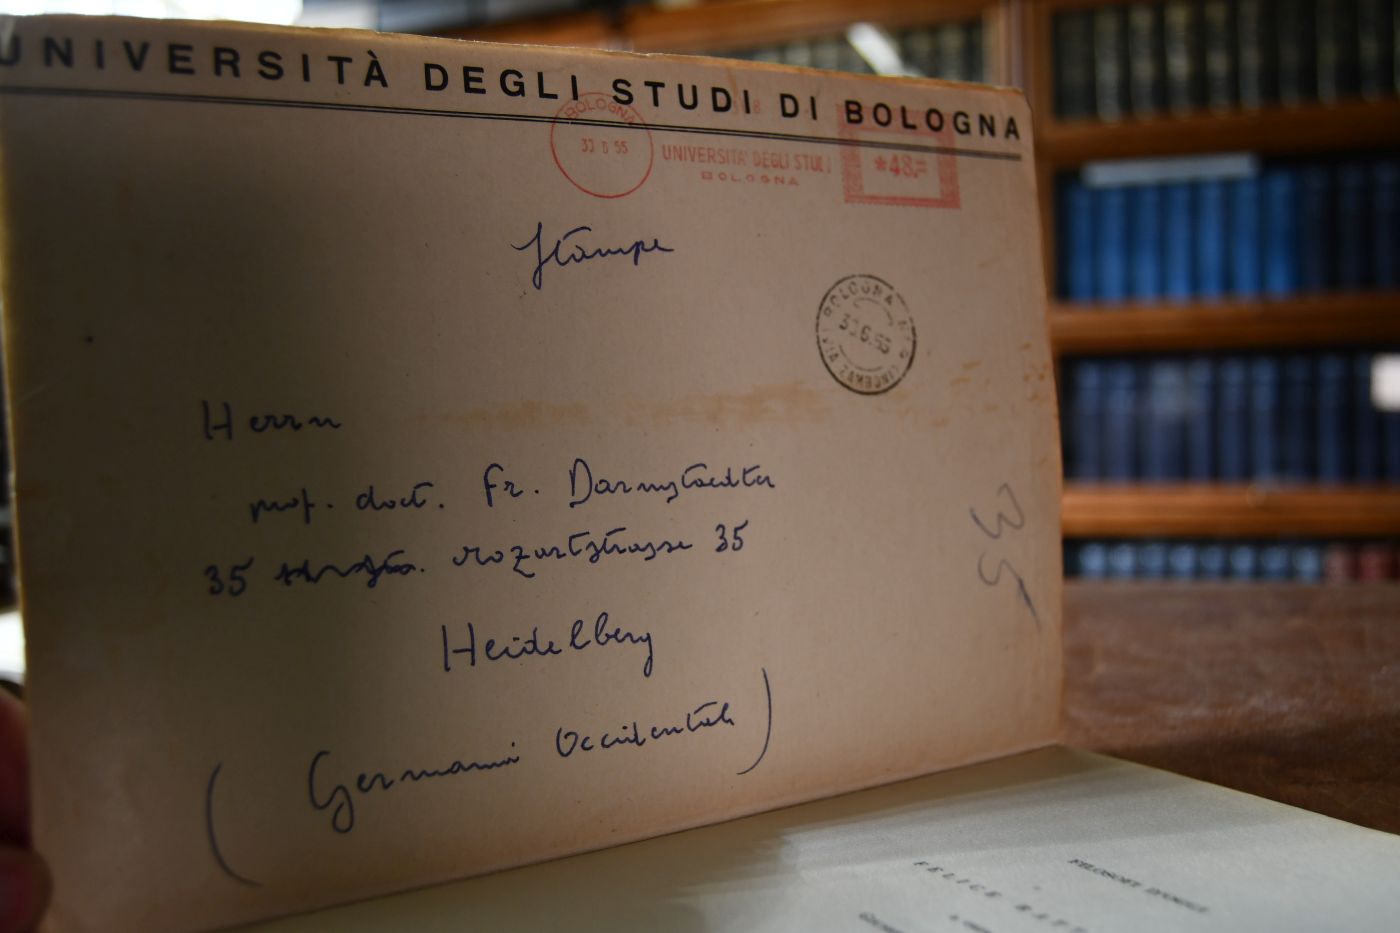 UNIVERSITÀ DEGLI STUDI DI BOLOGNA
BOLOGNA
30 6 55
UNIVERSITA' DEGLI STUDI
BOLOGNA
*48.=
Stampe
BOLOGNA N. 6
30.6.55
Herrn
prof. doct. Fr. Darmstaedter
35 Mozartstrasse 35
Heidelberg
(Germania Occidentale)
35
FILOSOFI D'OGGI
FELICE